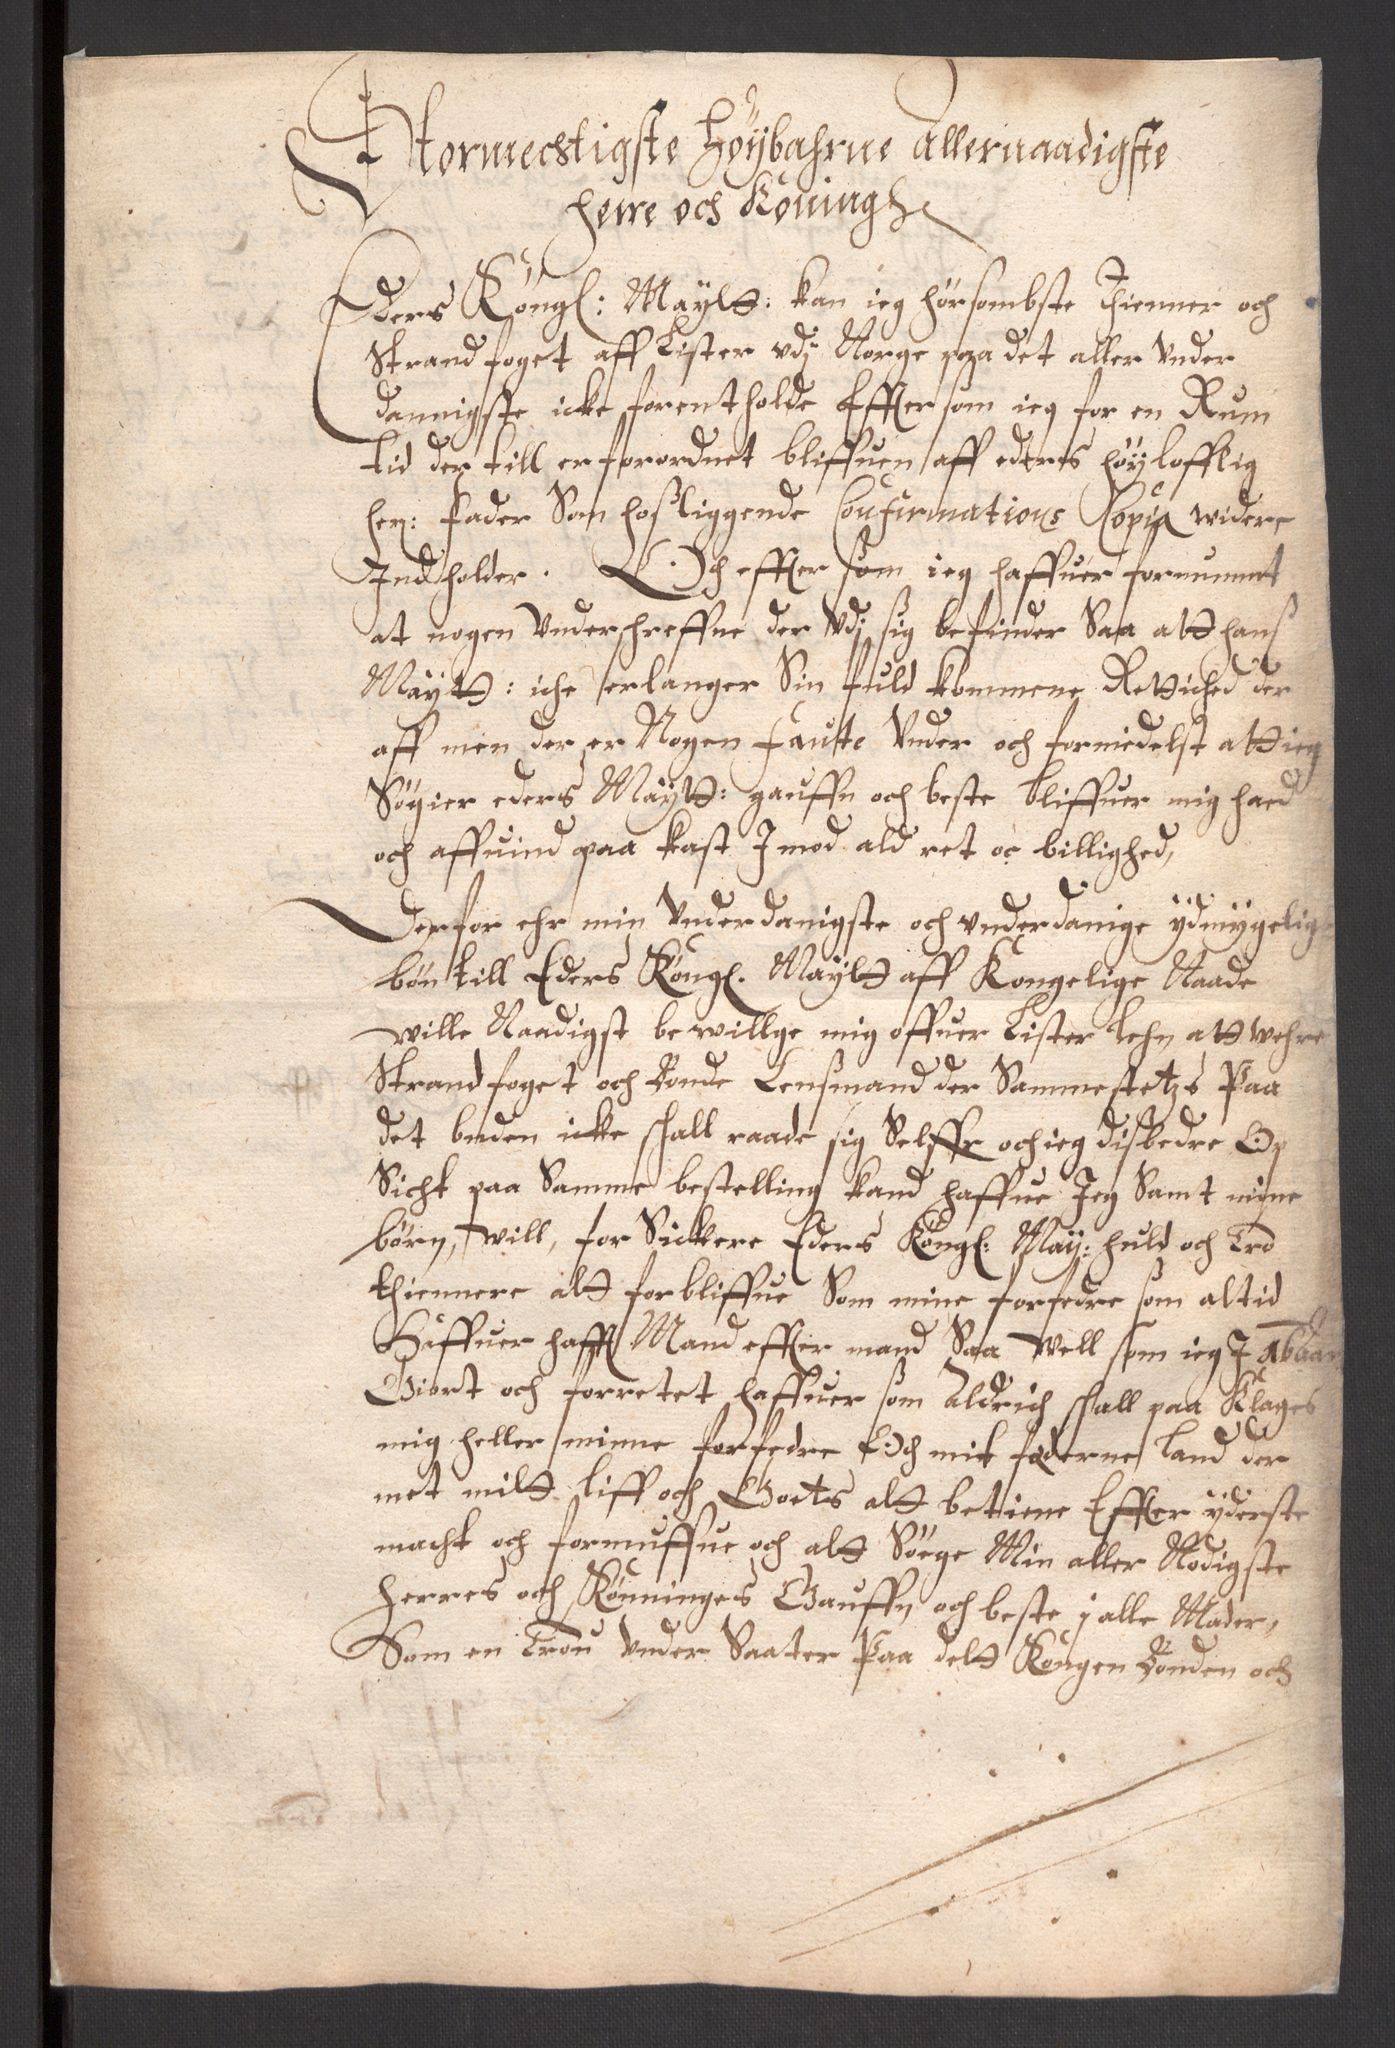 Stormechtigste Høÿbahrne Allernaadigste
herre och Koningh
Eders Köngl: Maÿtt: kan ieg hörsombste Thienner och
Strand foget aff Lister vdj Norge paa det aller vnder
dannigste icke forentholde Effter som ieg for en Rum
tid der till er forordnet bliffuen aff eders höÿlofflig
her: Fader Som hosliggende Confirmations Copia widere
Indholder. Och effter som ieg haffuer fornummet
at nogen Vnderschreffne der Vdj sig befinder Saa att hans
Maÿtt: iche erlanger Sin fuld kommene Rettiched der
aff men der er Nogen Faute Vnder och formedelst att ieg
Söger eders Maÿtt: gauffn och beste bliffuer mig haed
och affuind paa kast I mod ald ret oc billighed,
Derfor ehr min Vnderdanigste och vnderdanige ÿdmÿgelig
bön till Eders Köngl. Maÿtt aff Kongelige Naade
wille Naadigst be willge mig offuer Lister lehn att wehre
Strandfoget och Bonde Lensmand der Sammestetzs Paa
det bnden icke schall raade sig Selffr och ieg disbedre Op
Sicht paa Samme bestelling kand haffue Jeg Samt mine
börn, will, for Sickere Eders Köngl: Maÿ: huld och Tro
thiennere alt forbliffue Som mine forfedre som altid
Haffuer hafft Mand effter mand Saa Well som ieg I 16 aar
Giort och forretet haffuer som Aldrich schall paa Klages
mig heller minne forfedre Och mit föderne land der
met mitt liff och Goets alt betiene Effter ÿderste
macht och formuffue och alt Söege Min aller Nodigste
Herres och Könninges Gauffn och beste j alle Mader,
Som en Trou Vnder Saater Paa dett Köngen Bönden och